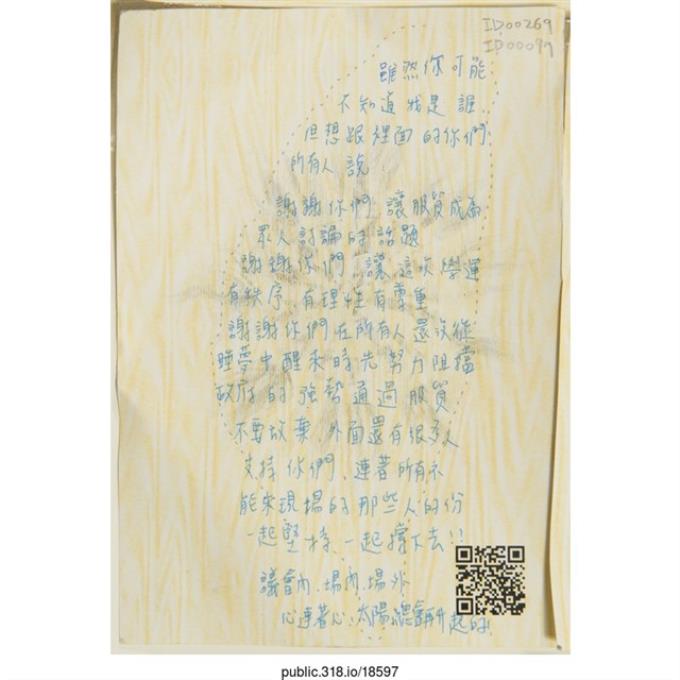 ID00269
ID00097
雖然你可能
不知道我是誰
但想跟裡面的你們
所有人說
謝謝你們 讓服貿成為
眾人討論的話題
謝謝你們 讓這次學運
有秩序 有理性有尊重
謝謝你們在所有人還沒從
睡夢中醒來時先努力阻擋
政府的強勢通過服貿
不要放棄 外面還有很多人
支持你們、連著所有不
能來現場的那些人的份
一起堅持、一起撐下去!!
議會內、場內、場外
心連著心、太陽總會再升起的!
public.318.io/18597